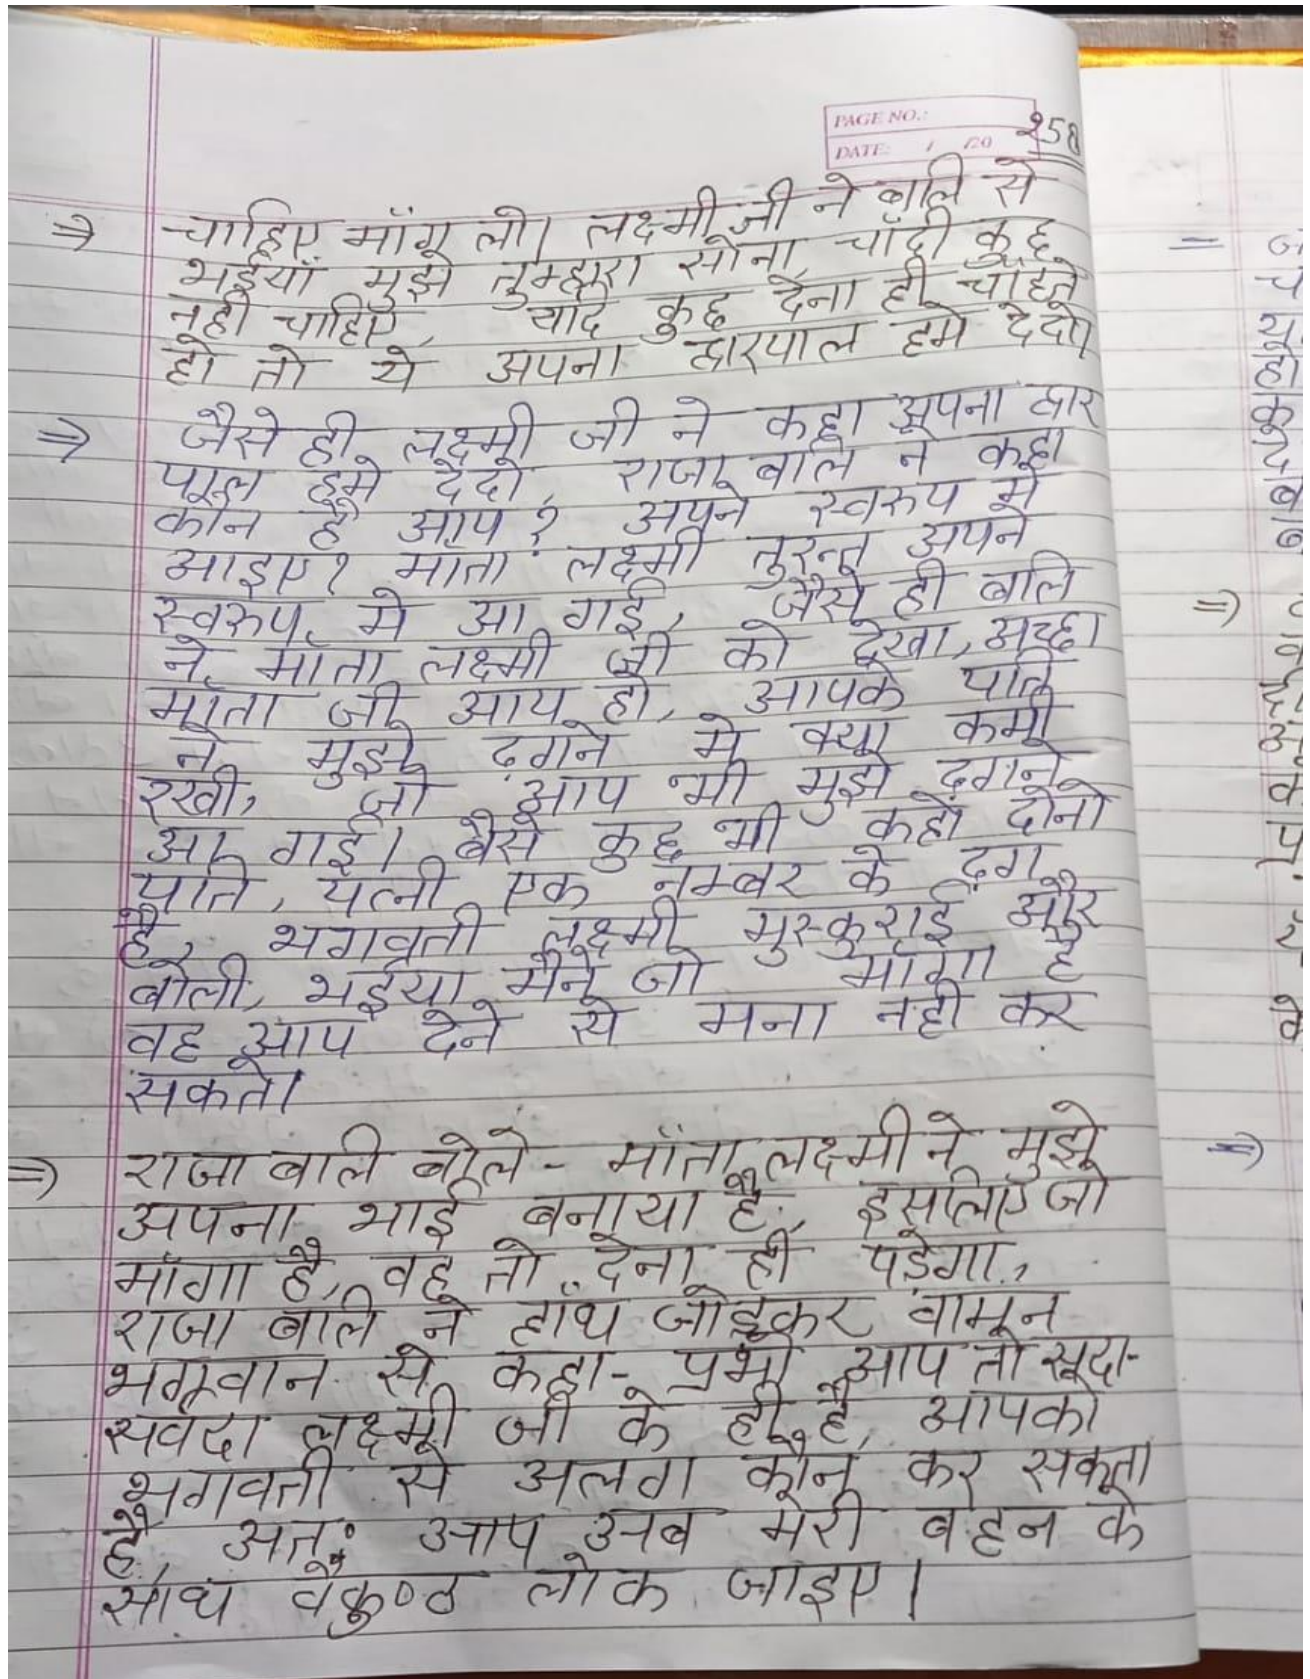 PAGE NO.: 258
DATE: / /20
⇒ चाहिए माँग लो। लक्ष्मी जी ने बलि से
भईयाँ मुझे तुम्हारा सोना, चाँदी कुछ
नही चाहिए, यदि कुछ देना ही चाहते
हो तो ये अपना द्वारपाल हमे देदो।
⇒ जैसे ही लक्ष्मी जी ने कहा अपना द्वार
पाल हमे देदो, राजा बलि ने कहा
कौन है आप? अपने स्वरुप मे
आइए? माँता लक्ष्मी तुरन्त अपने
स्वरुप मे आ गई, जैसे ही बलि
ने माँता लक्ष्मी जी को देखा, अच्छा
माँता जी आय हो, आपके पति
ने मुझे ढगने मे क्या कमी
रखी, जो आप भी मुझे ढगने
आ गई। वैसे कुछ भी कहों दोनो
पति, पत्नी एक नम्बर के ढग
है, भगवती लक्ष्मी मुस्कुराई और
बोली, भईया मैने जो माँगा है
वह आप देने से मना नही कर
सकते।
⇒ राजा बलि बोले - माँता लक्ष्मी ने मुझे
अपना भाई बनाया है, इसलिए जो
माँगा है, वह तो देना ही पड़ेगा,
राजा बलि ने हाँथ जोड़कर वामन
भगवान से कहा- प्रभो आप तो सदा-
सर्वदा लक्ष्मी जी के ही है, आपको
भगवती से अलग कौन कर सकता
है, अतः आप अब मेरी बहन के
साथ वैकुण्ठ लोक जाइए।